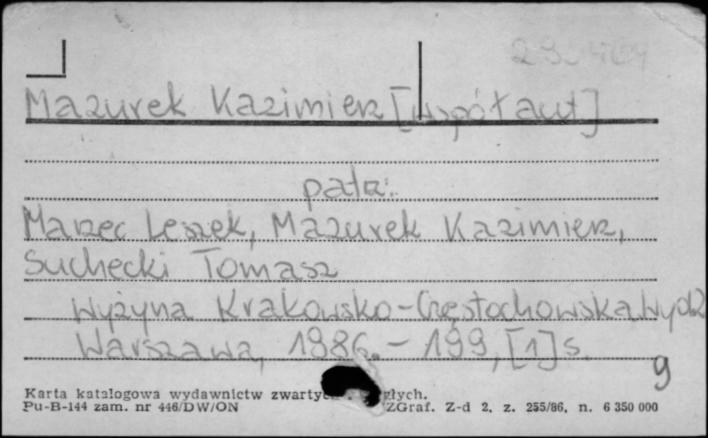 Mazurek Kazimierz [współaut]
patrz:
Marzec Leszek, Mazurek Kazimierz,
Suchecki Tomasz
Wyżyna Krakowsko-Częstochowska, Wyd 2
Warszawa, 1986. - 199, [1] s.
9
Karta katalogowa wydawnictw
Pu-B-144 zam. nr 446/DW/ON ZGraf. Z-d 2, z. 255/86, n. 6 350 000